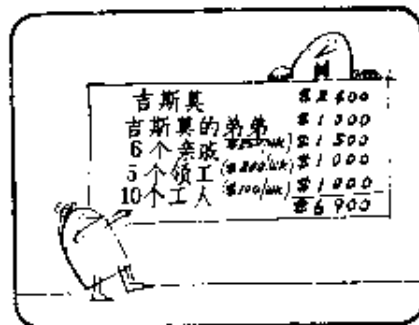 吉斯莫 $2400
吉斯莫的弟弟 $1000
6个亲戚 ($250/wk) $1500
5个领工 ($200/wk) $1000
10个工人 ($100/wk) $1000
$6900